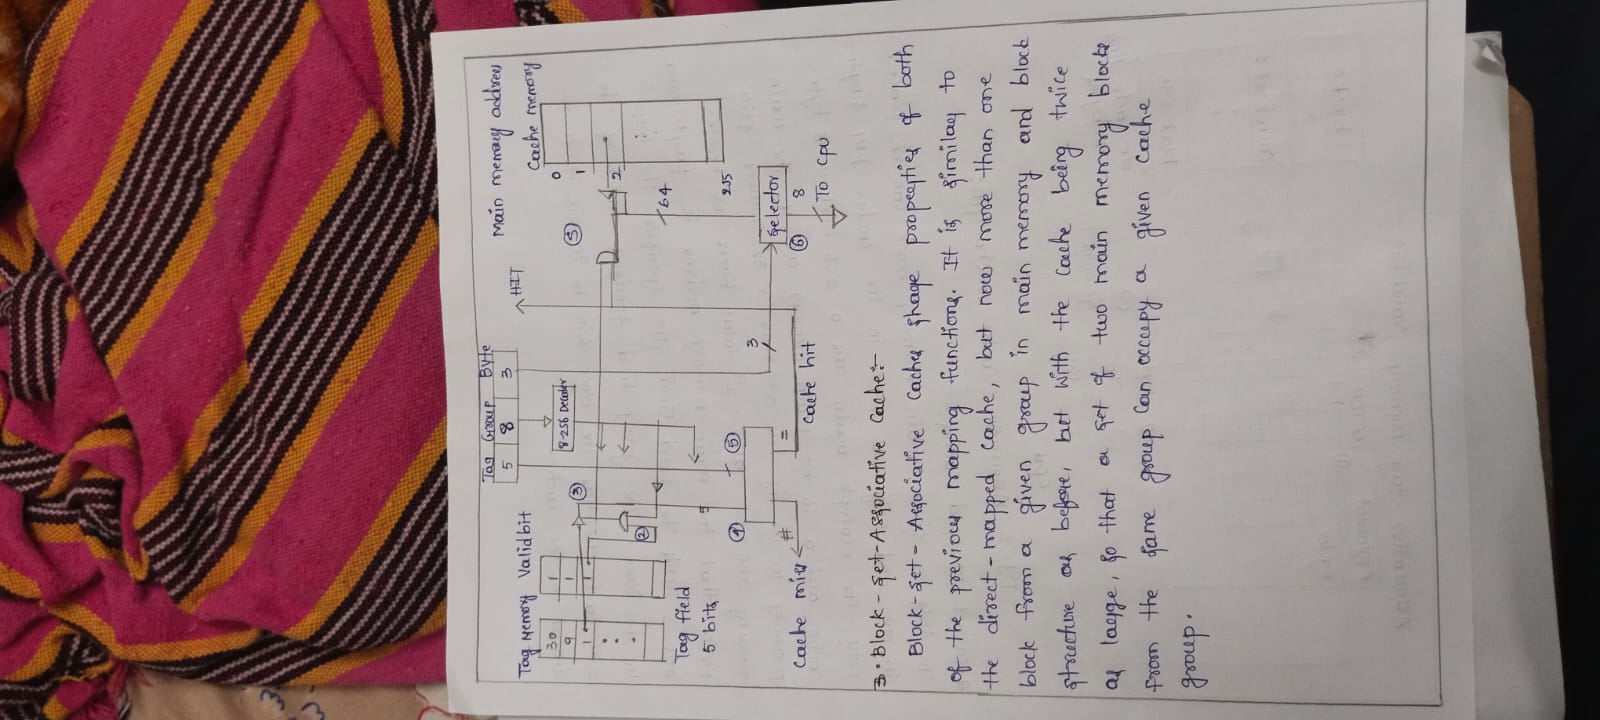 Tag Group Byte
5 8 3
Main memory address
HIT
Tag Memory Valid bit
Cache memory
30 1
9 1
1 1
8-256 Decoder
0
1
2
255
3
5
2
64
Tag field
5 bits
5
4
5
3
Selector
#
=
Cache miss
Cache hit
6
8
To CPU
3. Block-Set-Associative Cache:-
Block-Set-Associative caches share properties of both
of the previous mapping functions. It is similar to
the direct-mapped cache, but now more than one
block from a given group in main memory and block
structure as before, but with the cache being twice
as large, so that a set of two main memory blocks
from the same group can occupy a given cache
group.